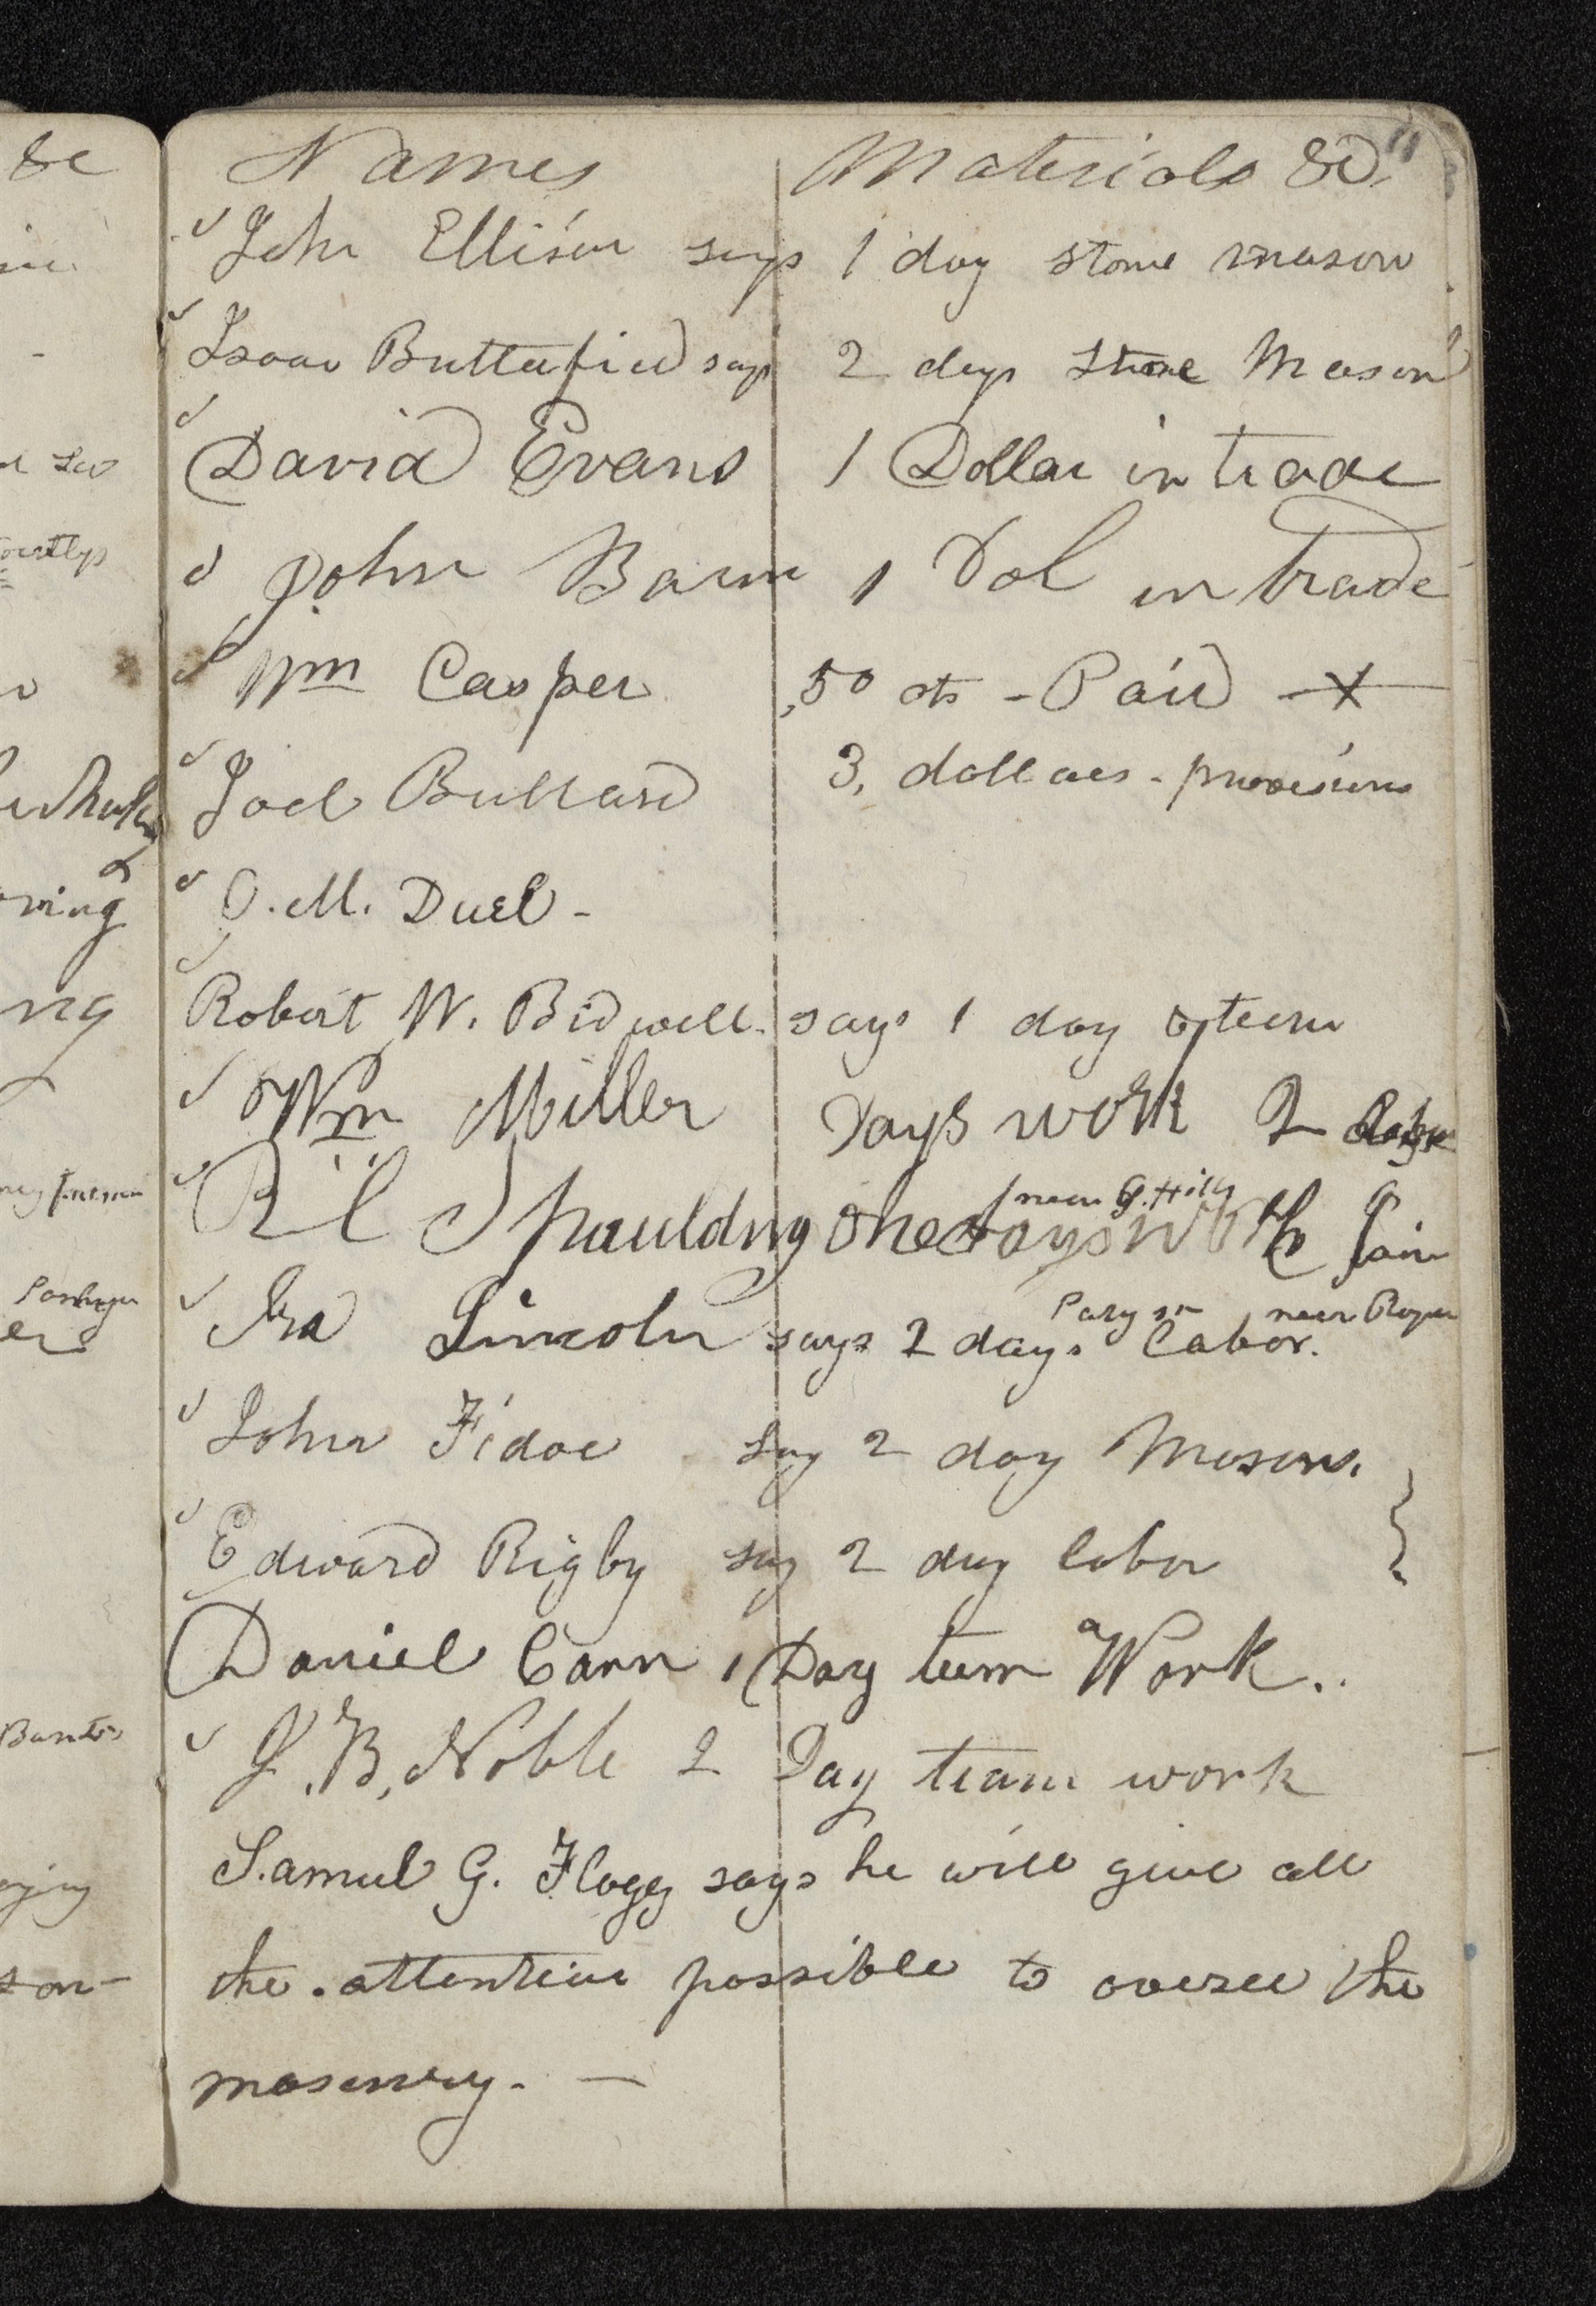 Names Materials &c. 11
John Ellison says 1 day stone mason
Isaac Butterfield says 2 days stone Mason
David Evans 1 Dollar in trade
John Bawn 1 Dol in trade
Wm Casper ,50 cts - Paid
Joel Bullard 3, dollars - provisions
O. M. Duel -
Robert W. Bidwell says 1 day of team
Wm Miller Days work 2
near G. Hills
R C Spaulding one days work
Parys near
Ira Lincoln says 2 days Labor.
John Fidoe say 2 day Mason.
Edward Rigby say 2 day labor
Daniel Carn 1 Day team Work..
J. B. Noble 2 Day team work
Samul G. Flagg says he will give all
the attention possible to oversee the
masonry. —